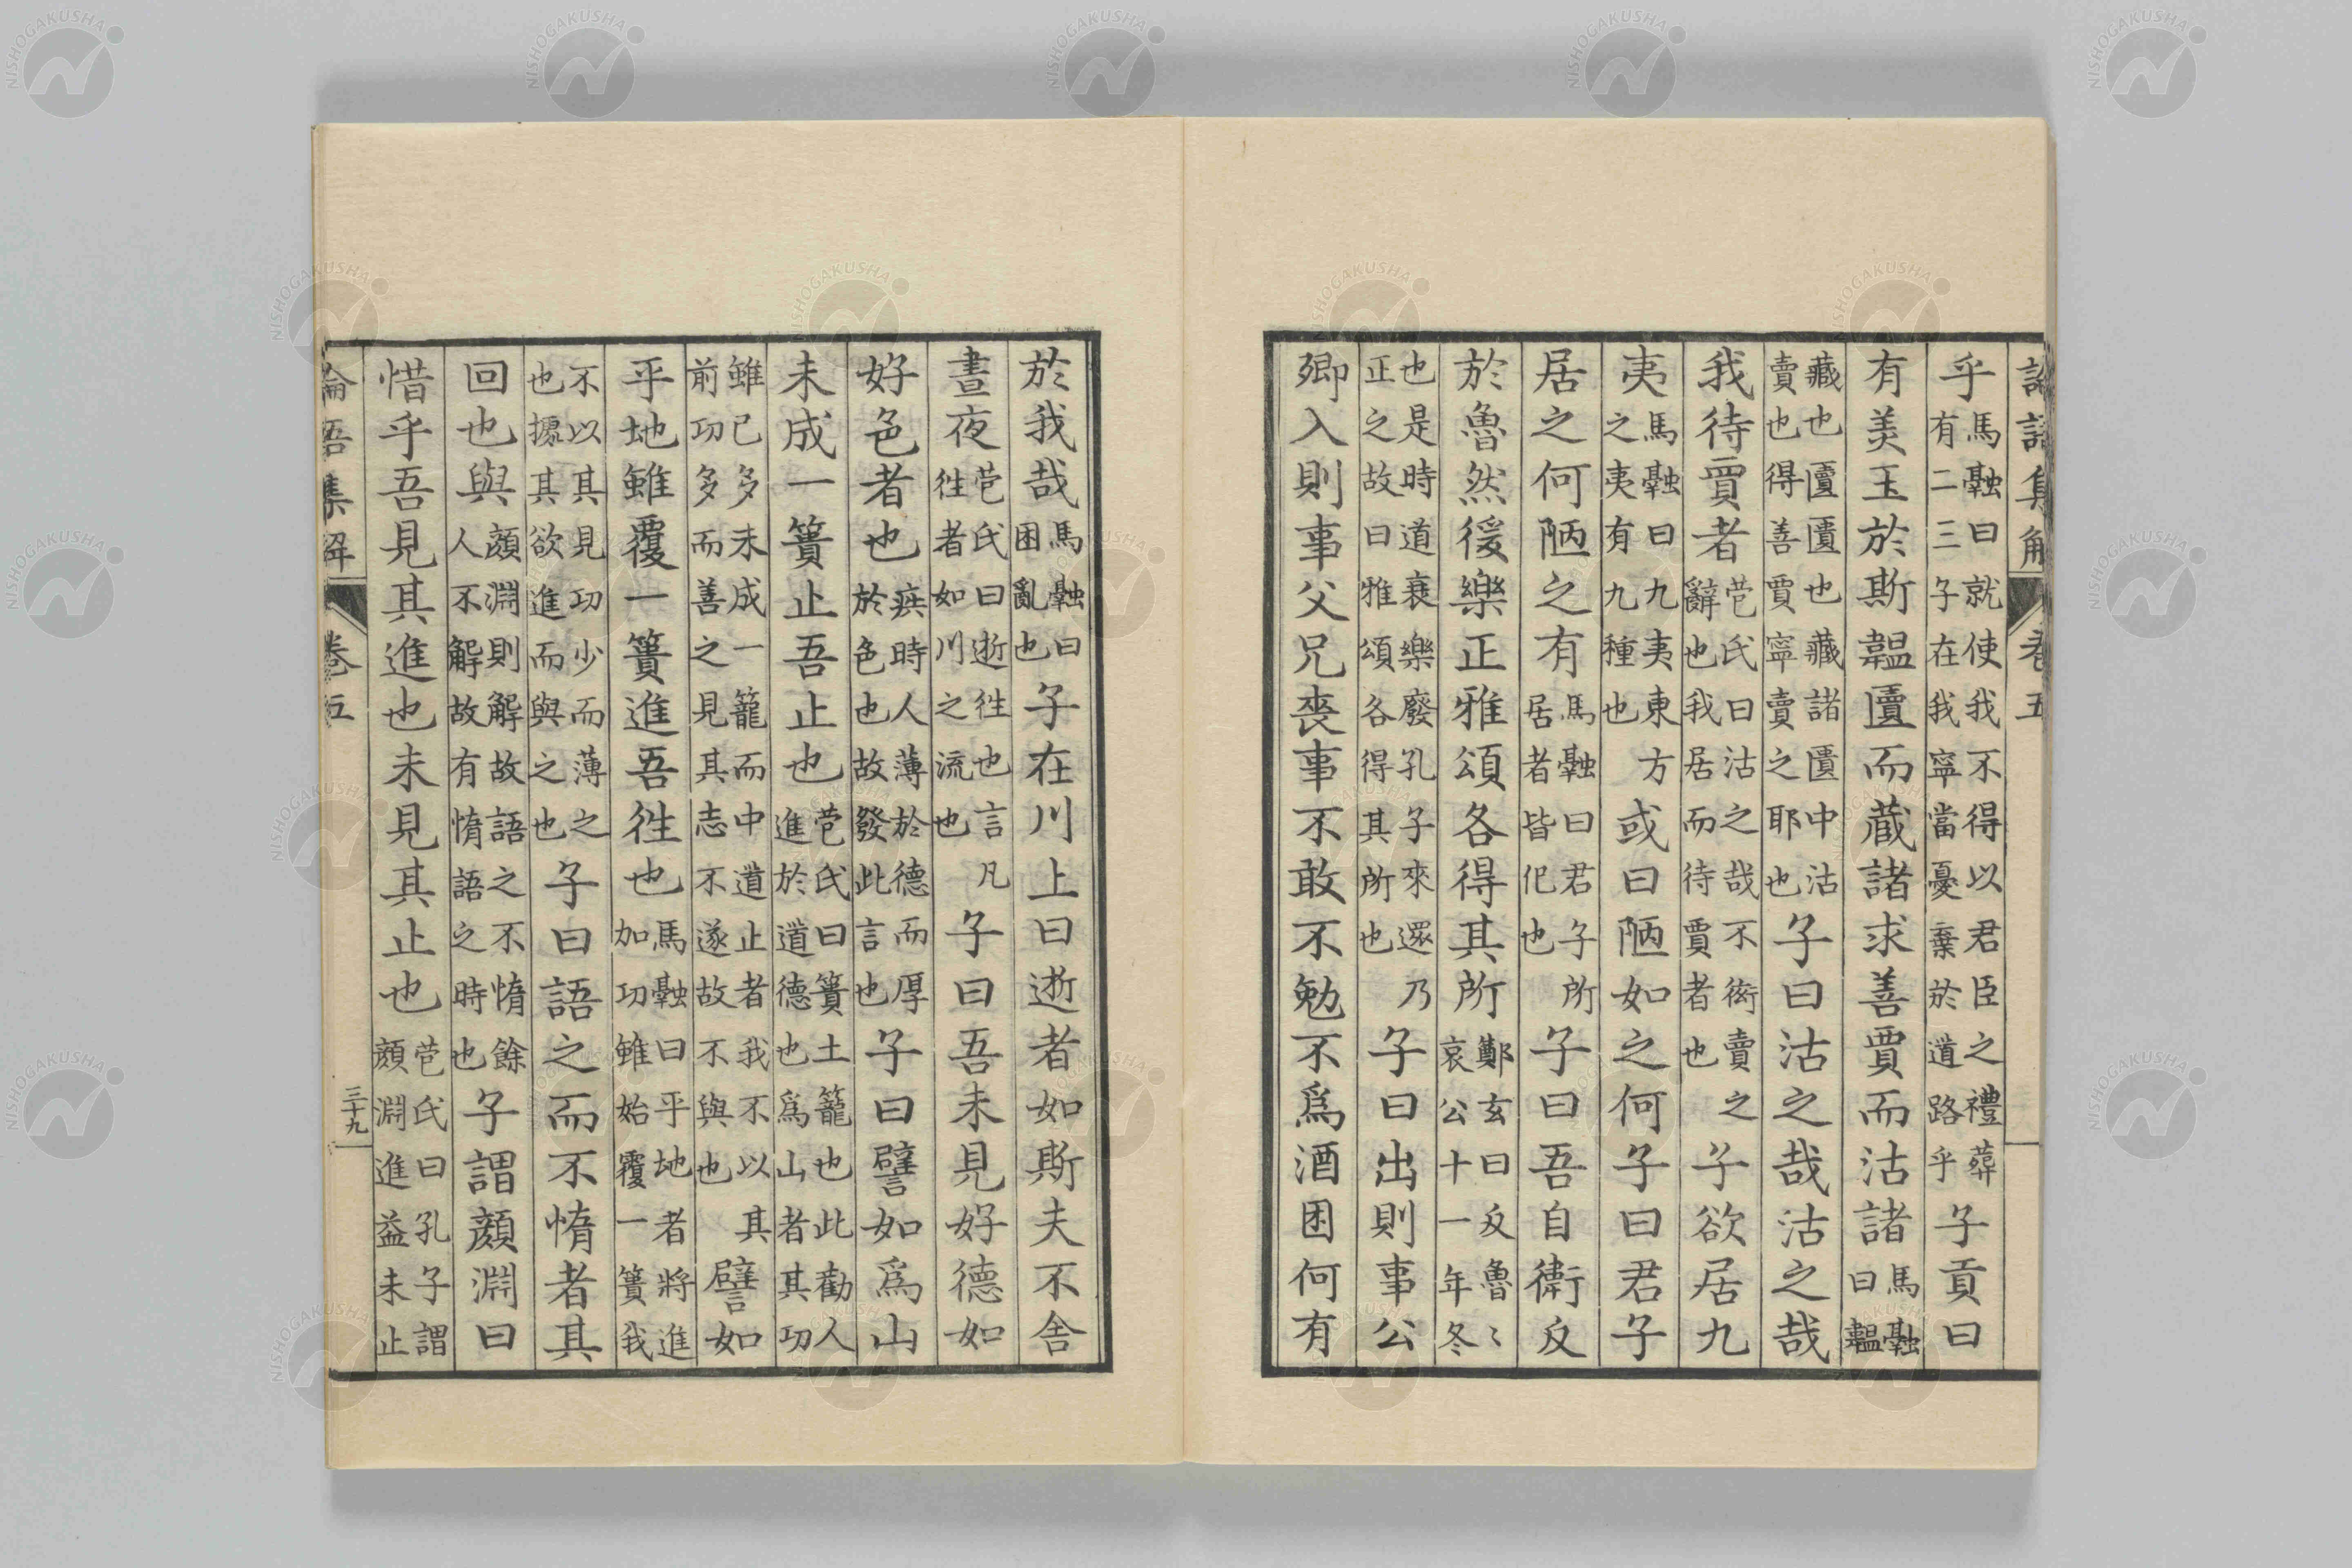 論語集解 卷五
乎馬融曰就使我不得以君臣之禮葬有二三子在我寧當憂棄於道路乎子貢曰
有美玉於斯韞匵而藏諸求善賈而沽諸馬融曰韞
藏也匵匱也藏諸匱中沽賣也得善賈寧賣之耶也子曰沽之哉沽之哉
我待賈者苞氏曰沽之哉不衒賣之辭也我居而待賈者也子欲居九
夷馬融曰九夷東方之夷有九種也或曰陋如之何子曰君子
居之何陋之有馬融曰君子所居者皆化也子曰吾自衛反
於魯然後樂正雅頌各得其所鄭玄曰反魯〻哀公十一年冬
也是時道衰樂廢孔子來還乃正之故曰雅頌各得其所也子曰出則事公
卿入則事父兄喪事不敢不勉不爲酒困何有
於我哉馬融曰困亂也子在川上曰逝者如斯夫不舎
晝夜苞氏曰逝往也言凡往者如川之流也子曰吾未見好德如
好色者也疾時人薄於德而厚於色也故發此言也子曰譬如爲山
未成一簣止吾止也苞氏曰簣土籠也此勸人進於道德也爲山者其功
雖已多未成一籠而中道止者我不以其前功多而善之見其志不遂故不與也譬如
平地雖覆一簣進吾往也馬融曰平地者將進加功雖始覆一簣我
不以其見功少而薄之也據其欲進而與之也子曰語之而不惰者其
回也與顏淵則解故語之不惰餘人不解故有惰語之時也子謂顏淵曰
惜乎吾見其進也未見其止也苞氏曰孔子謂顏淵進益未止
論語集解 卷五 三十九
NISHOGAKUSHA